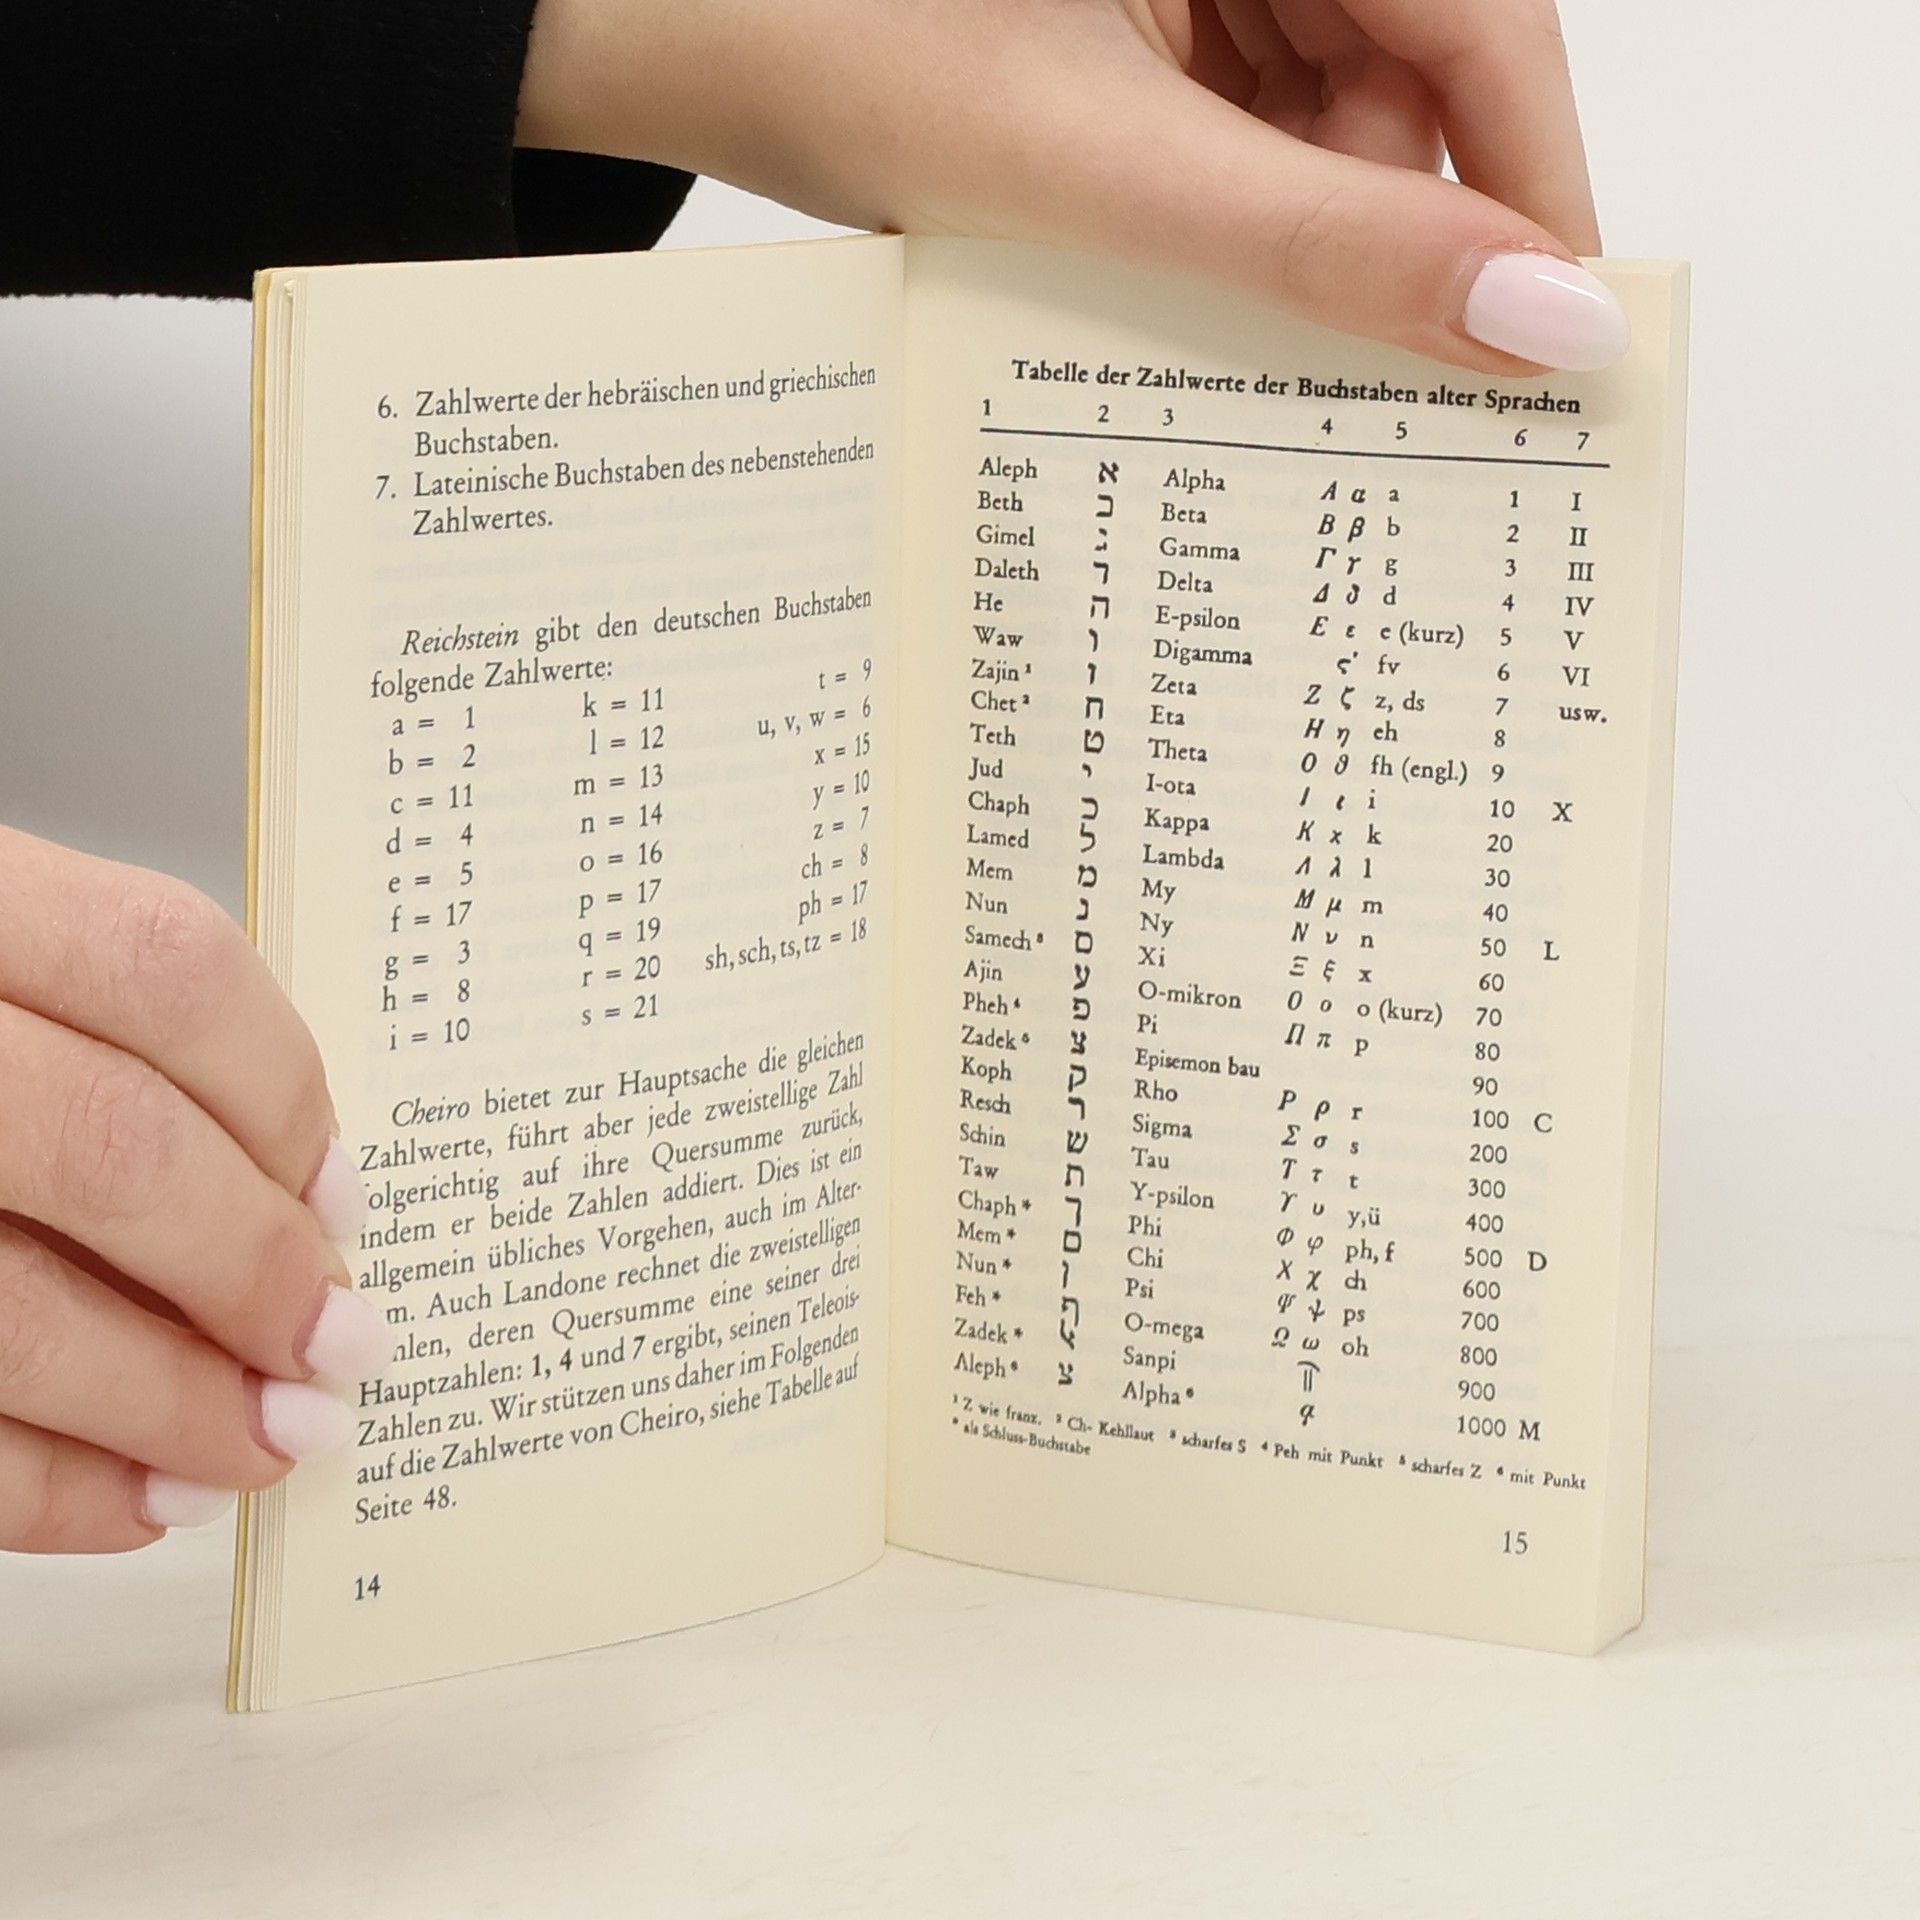 6. Zahlwerte der hebräischen und griechischen
Buchstaben.
7. Lateinische Buchstaben des nebenstehenden
Zahlwertes.
Reichstein gibt den deutschen Buchstaben
folgende Zahlwerte:
a = 1 k = 11 t = 9
b = 2 l = 12 u, v, w = 6
c = 11 m = 13 x = 15
d = 4 n = 14 y = 10
e = 5 o = 16 z = 7
f = 17 p = 17 ch = 8
g = 3 q = 19 ph = 17
h = 8 r = 20 sh, sch, ts, tz = 18
i = 10 s = 21
Cheiro bietet zur Hauptsache die gleichen
Zahlwerte, führt aber jede zweistellige Zahl
olgerichtig auf ihre Quersumme zurück,
indem er beide Zahlen addiert. Dies ist ein
allgemein übliches Vorgehen, auch im Alter-
m. Auch Landone rechnet die zweistelligen
hlen, deren Quersumme eine seiner drei
Hauptzahlen: 1, 4 und 7 ergibt, seinen Teleois-
Zahlen zu. Wir stützen uns daher im Folgenden
auf die Zahlwerte von Cheiro, siehe Tabelle auf
Seite 48.
14
Tabelle der Zahlwerte der Buchstaben alter Sprachen
1 2 3 4 5 6 7
Aleph א Alpha Α α a 1 I
Beth ב Beta Β β b 2 II
Gimel ג Gamma Γ γ g 3 III
Daleth ד Delta Δ δ d 4 IV
He ה E-psilon Ε ε e (kurz) 5 V
Waw ו Digamma ς' fv 6 VI
Zajin ¹ ז Zeta Ζ ζ z, ds 7 usw.
Chet ² ח Eta Η η eh 8
Teth ט Theta Ο ϑ fh (engl.) 9
Jud י I-ota Ι ι i 10 X
Chaph כ Kappa Κ κ k 20
Lamed ל Lambda Λ λ l 30
Mem מ My Μ μ m 40
Nun נ Ny Ν ν n 50 L
Samech ³ ס Xi Ξ ξ x 60
Ajin ע O-mikron Ο ο o (kurz) 70
Pheh ⁴ פ Pi Π π p 80
Zadek ⁵ צ Episemon bau 90
Koph ק Rho Ρ ρ r 100 C
Resch ר Sigma Σ σ s 200
Schin ש Tau Τ τ t 300
Taw ת Y-psilon Υ υ y,ü 400
Chaph * ך Phi Φ φ ph, f 500 D
Mem * ם Chi Χ χ ch 600
Nun * ן Psi Ψ ψ ps 700
Feh * ף O-mega Ω ω oh 800
Zadek * ץ Sanpi 900
Aleph ⁶ Alpha ⁶ α 1000 M
¹ Z wie franz. ² Ch- Kehllaut ³ scharfes S ⁴ Peh mit Punkt ⁵ scharfes Z ⁶ mit Punkt
* als Schluss-Buchstabe
15